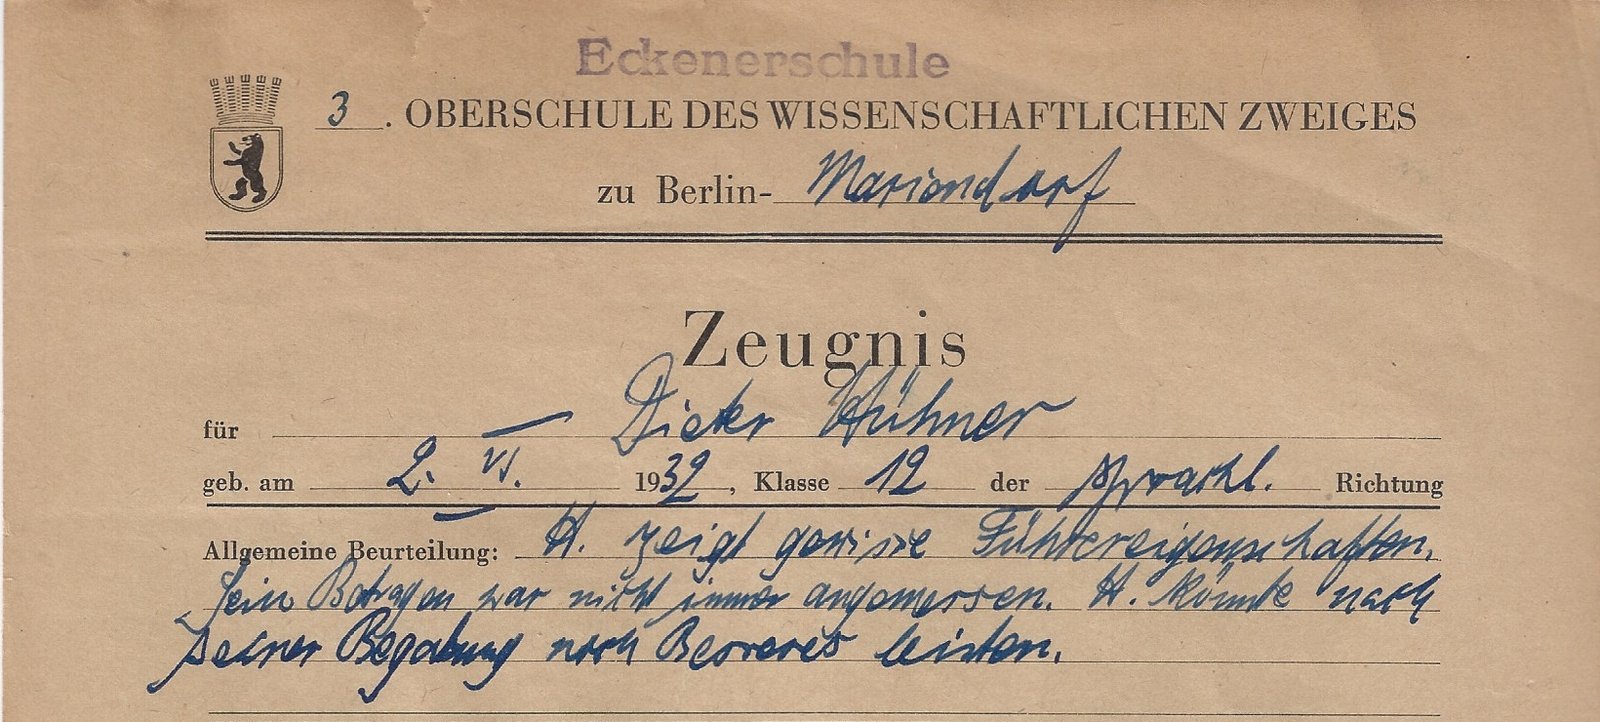 Eckenerschule
3. OBERSCHULE DES WISSENSCHAFTLICHEN ZWEIGES
zu Berlin- Mariendorf
Zeugnis
für Dieter Hühner
geb. am 2. VI. 1932, Klasse 12 der sprachl. Richtung
Allgemeine Beurteilung: H. zeigt gewisse Führereigenschaften.
Sein Betragen war nicht immer angemessen. H. könnte nach
seiner Begabung noch Besseres leisten.